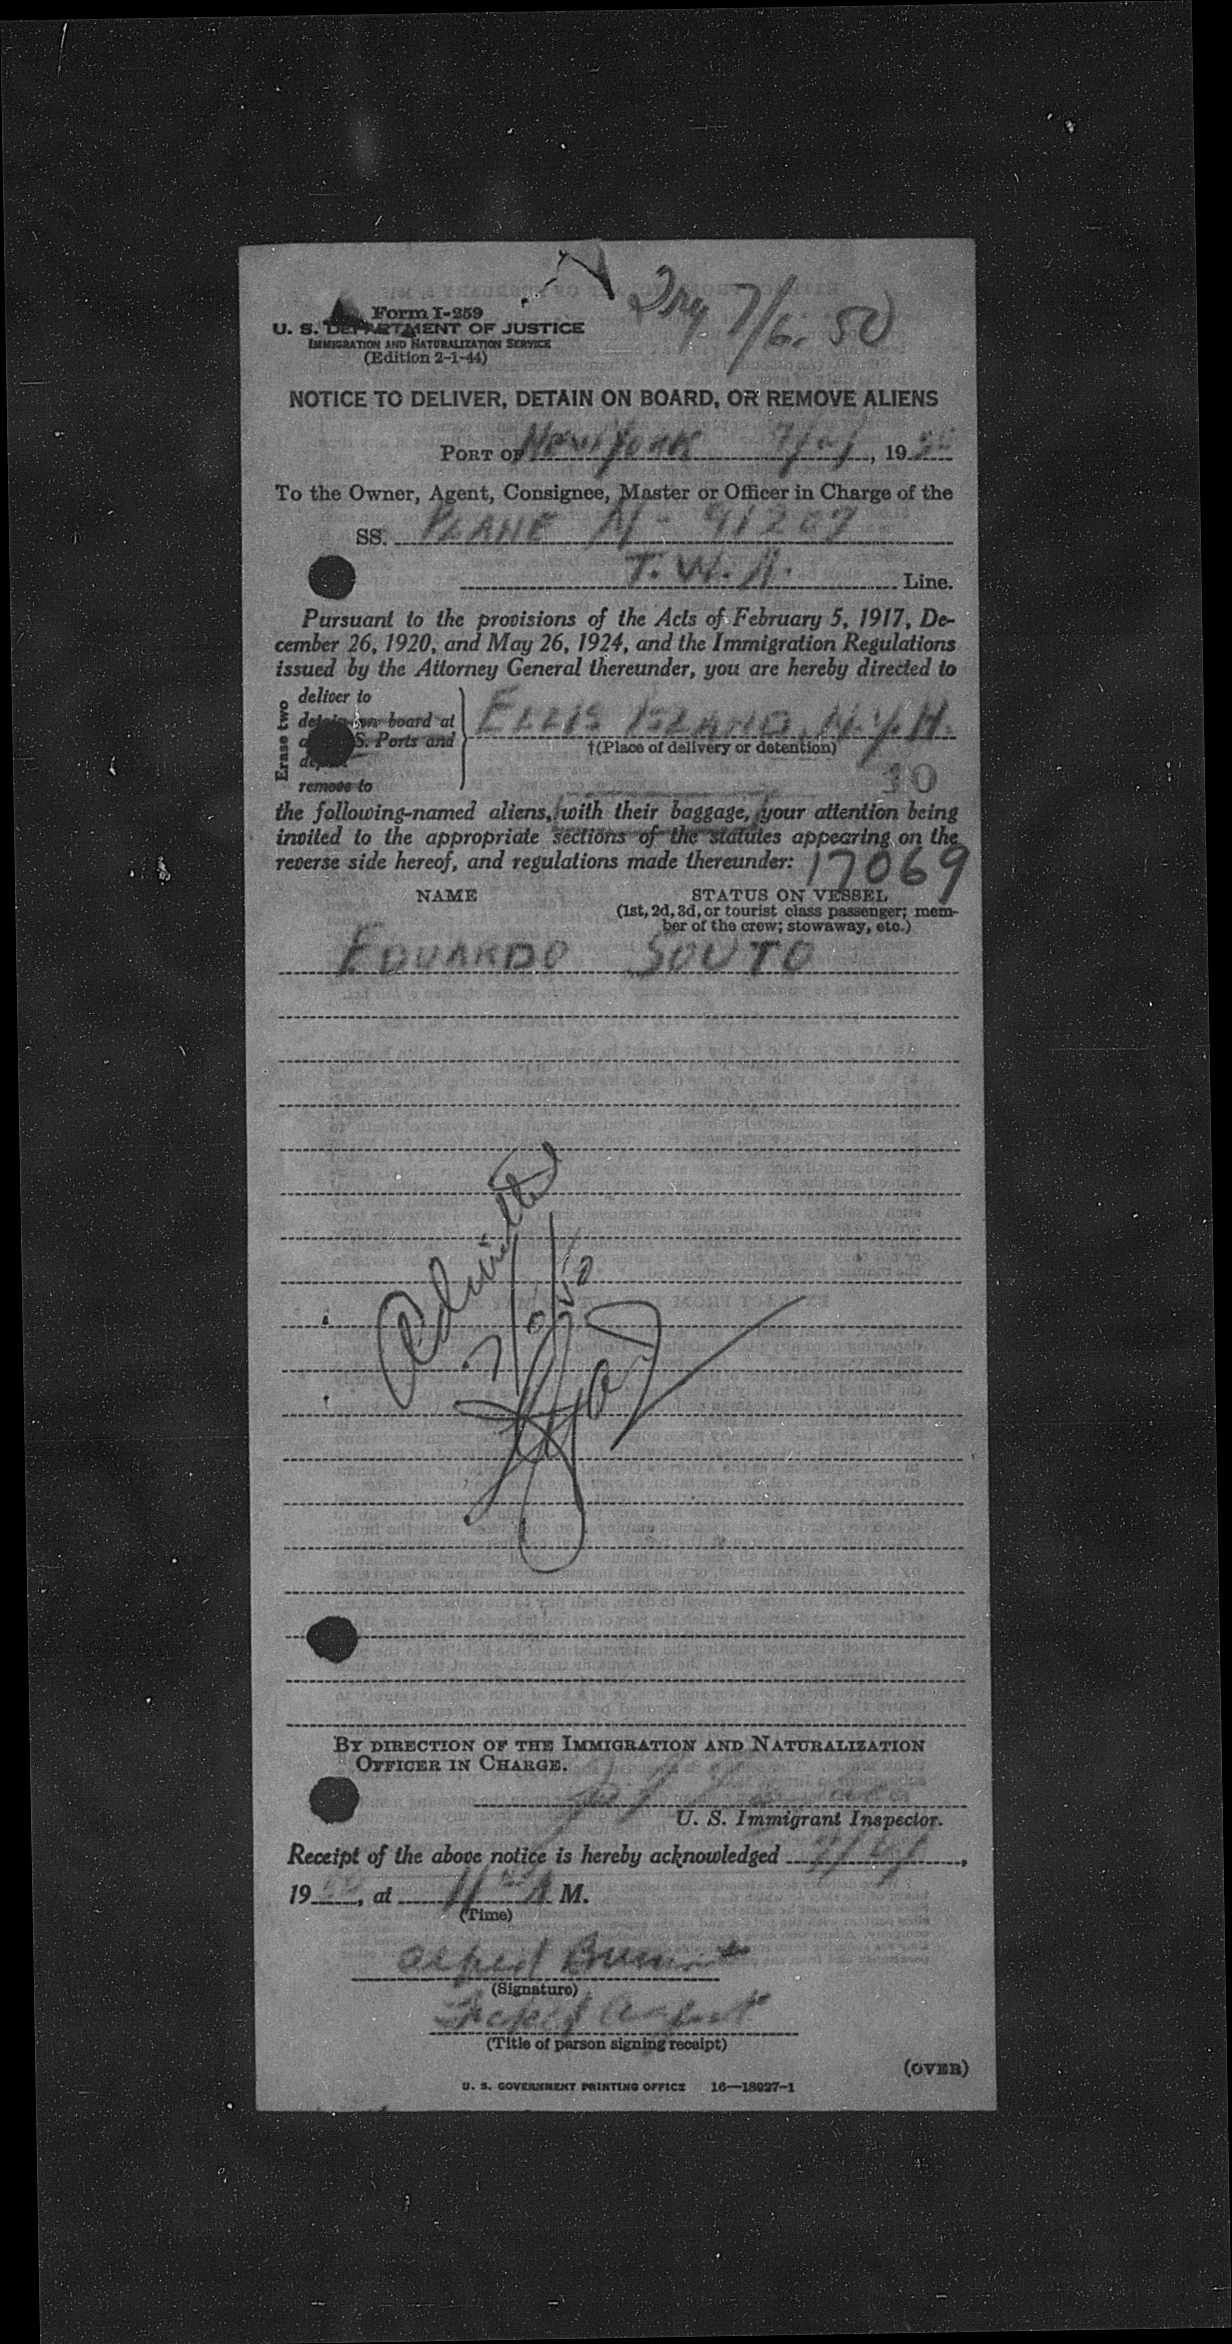 7/6. 50
Form I-259
U. S. DEPARTMENT OF JUSTICE
IMMIGRATION AND NATURALIZATION SERVICE
(Edition 2-1-44)
NOTICE TO DELIVER, DETAIN ON BOARD, OR REMOVE ALIENS
PORT OF New York , 19 50
To the Owner, Agent, Consignee, Master or Officer in Charge of the
SS. PLANE N-91207
T. W. A. Line.
Pursuant to the provisions of the Acts of February 5, 1917, De-
cember 26, 1920, and May 26, 1924, and the Immigration Regulations
issued by the Attorney General thereunder, you are hereby directed to
Erase two
deliver to
detain on board at
S. Ports and
remove to
ELLIS ISLAND, N.Y.H.
†(Place of delivery or detention)
10
the following-named aliens, with their baggage, your attention being
invited to the appropriate sections of the statutes appearing on the
reverse side hereof, and regulations made thereunder:
17069
NAME STATUS ON VESSEL
(1st, 2d, 3d, or tourist class passenger; mem-
ber of the crew; stowaway, etc.)
EDUARDO SOUTO
Admitted
BY DIRECTION OF THE IMMIGRATION AND NATURALIZATION
OFFICER IN CHARGE.
U. S. Immigrant Inspector.
Receipt of the above notice is hereby acknowledged ,
19 , at 11 A M.
(Time)
Alfred
(Signature)
Ticket Agent
(Title of person signing receipt)
(OVER)
U. S. GOVERNMENT PRINTING OFFICE 16—18027-1